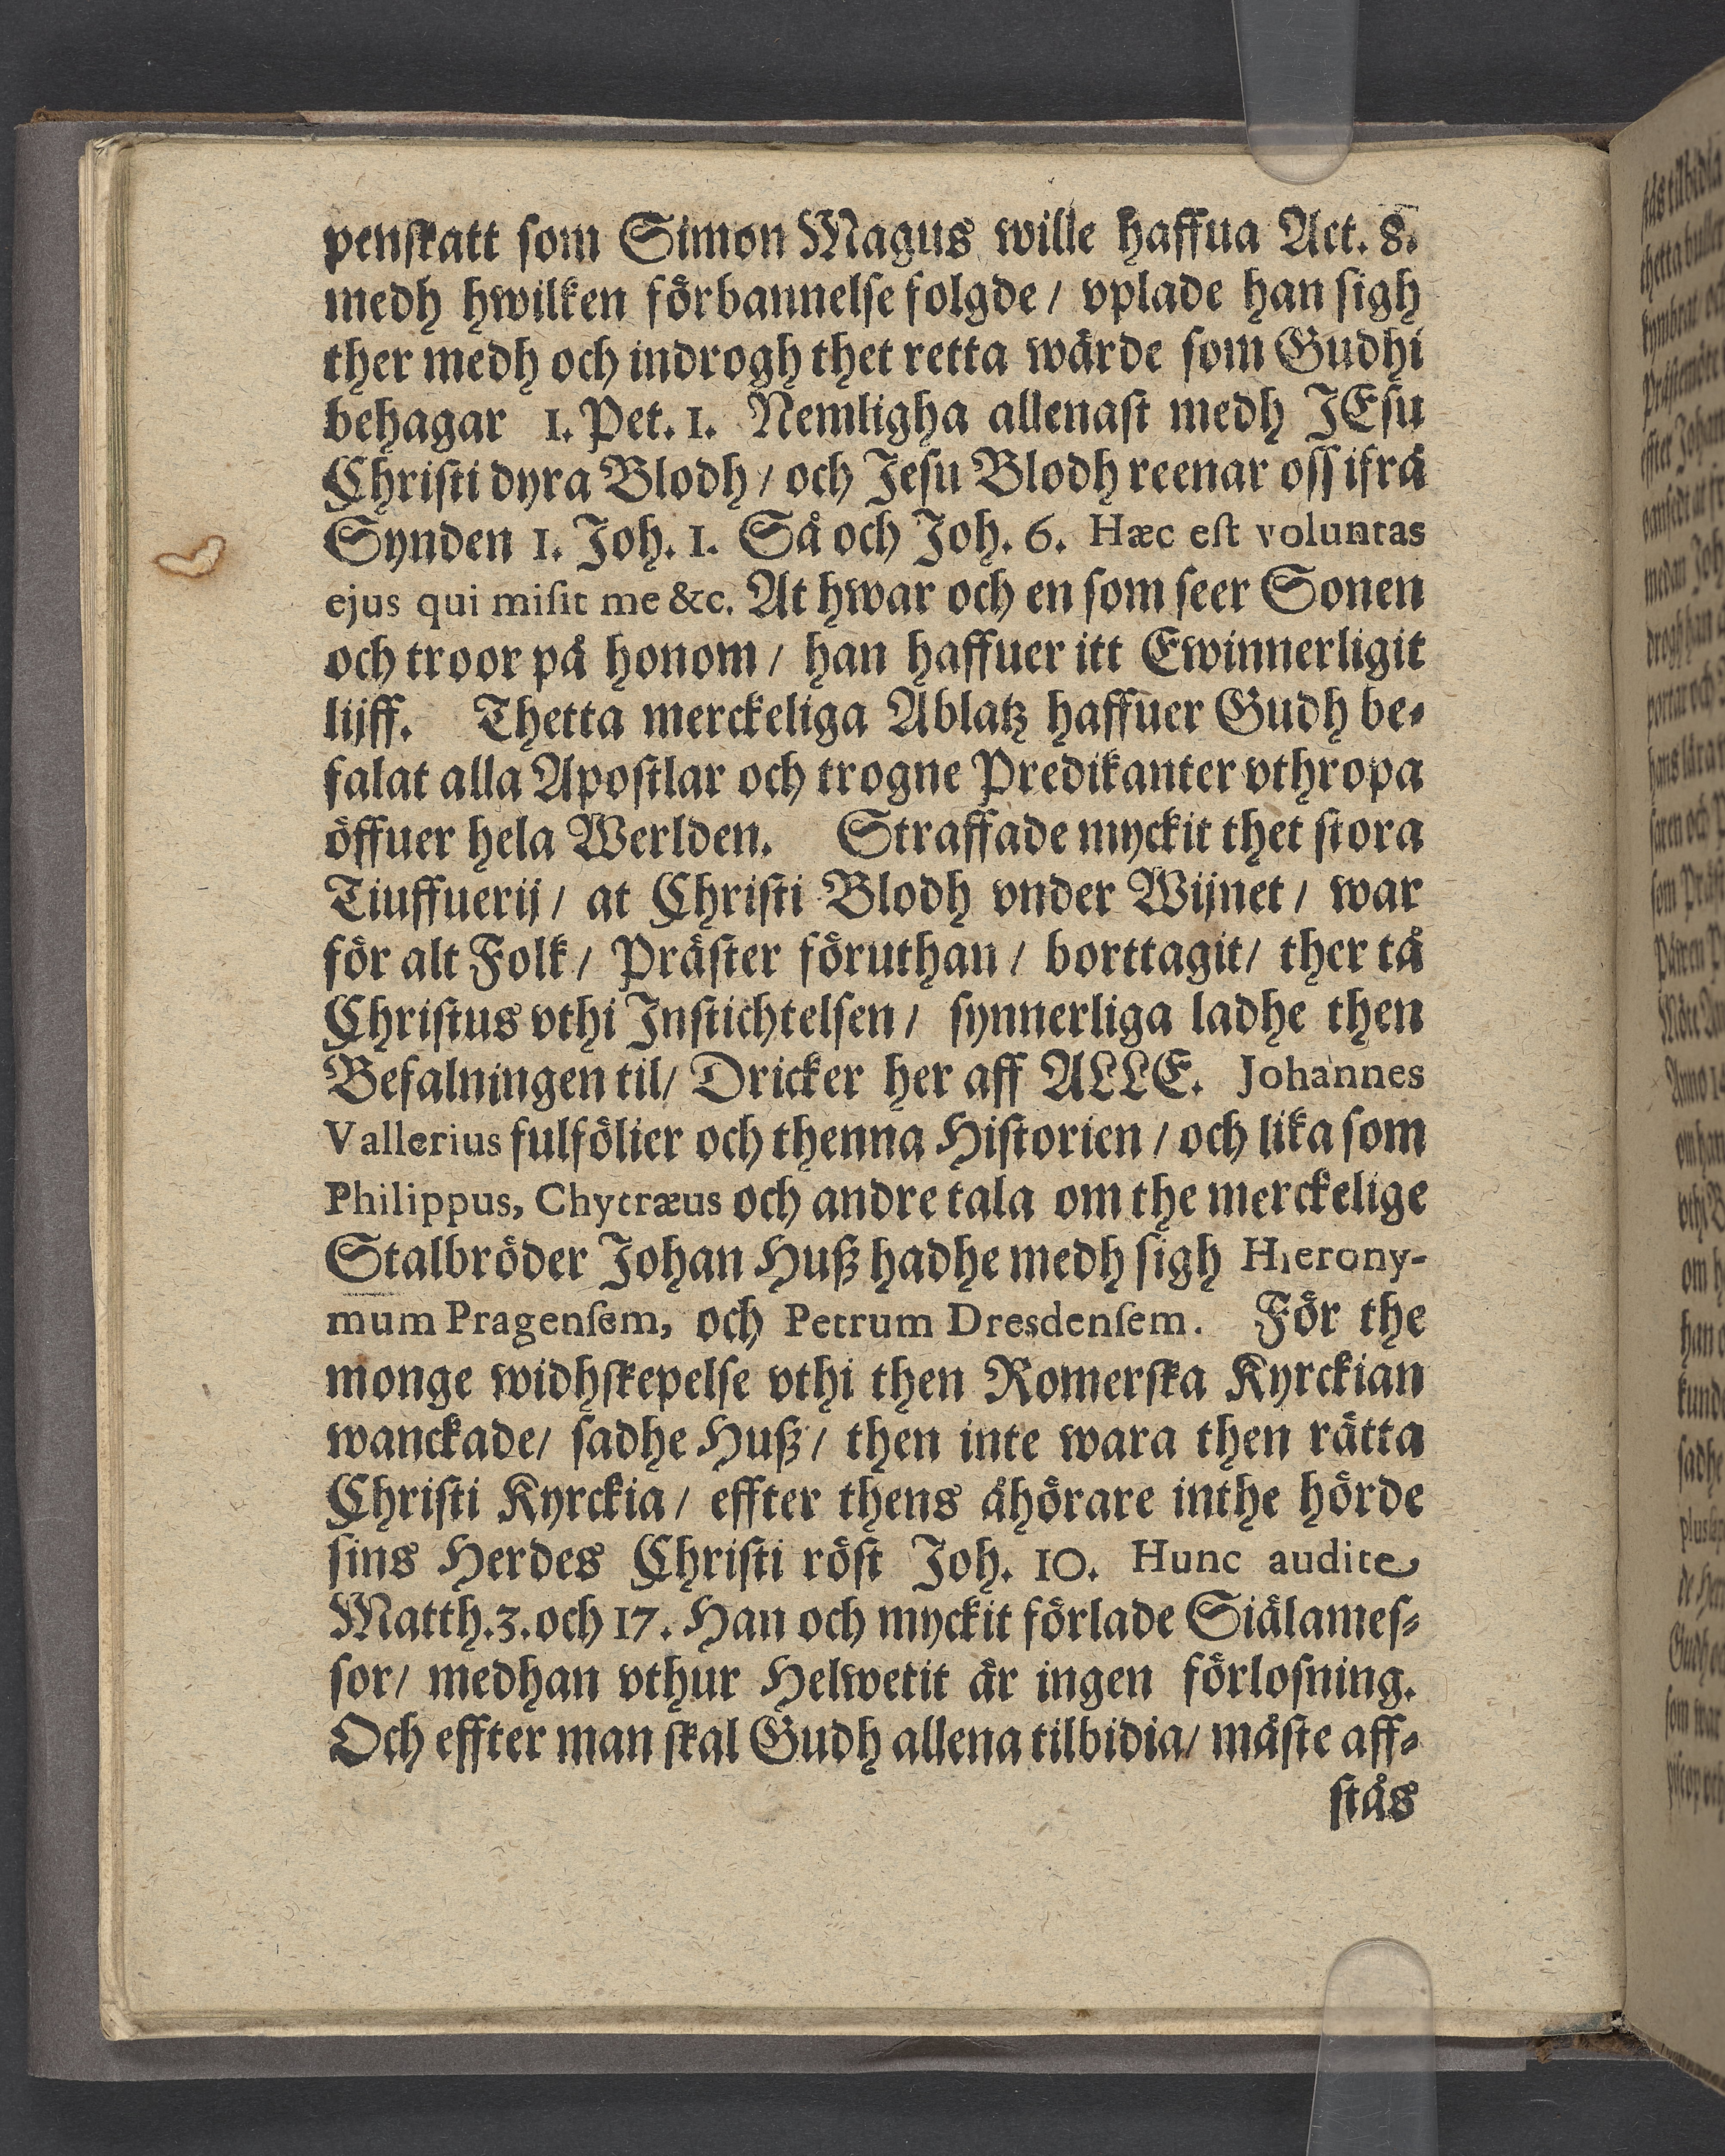 penskatt som Simon Magus wille haffua Act. 8.
medh hwilken förbannelse folgde / vplade han sigh
ther medh och indrogh thet retta wärde som Gudhi
behagar 1. Pet. 1. Nemligha allenast medh JEsu
Christi dyra Blodh / och Jesu Blodh reenar oss ifrå
Synden 1. Joh. 1. Så och Joh. 6. Hæc est voluntas
ejus qui misit me &c. At hwar och en som seer Sonen
och troor på honom / han haffuer itt Ewinnerligit
lijff. Thetta merckeliga Ablatz haffuer Gudh be-
falat alla Apostlar och trogne Predikanter vthropa
öffuer hela Werlden. Straffade myckit thet stora
Tiuffuerij / at Christi Blodh vnder Wijnet / war
för alt Folk / Präster föruthan / borttagit / ther tå
Christus vthi Instichtelsen / synnerliga ladhe then
Befalningen til / Dricker her aff ALLE. Johannes
Vallerius fulfölier och thenna Historien / och lika som
Philippus, Chytræus och andre tala om the merckelige
Stalbröder Johan Huß hadhe medh sigh Hierony-
mum Pragensem, och Petrum Dresdensem. För the
monge widhskepelse vthi then Romerska Kyrckian
wanckade / sadhe Huß / then inte wara then rätta
Christi Kyrckia / effter thens åhörare inthe hörde
sins Herdes Christi röst Joh. 10. Hunc audite
Matth. 3. och 17. Han och myckit förlade Siälames-
sor / medhan vthur Helwetit är ingen förlosning.
Och effter man skal Gudh allena tilbidia / måste aff-
stås